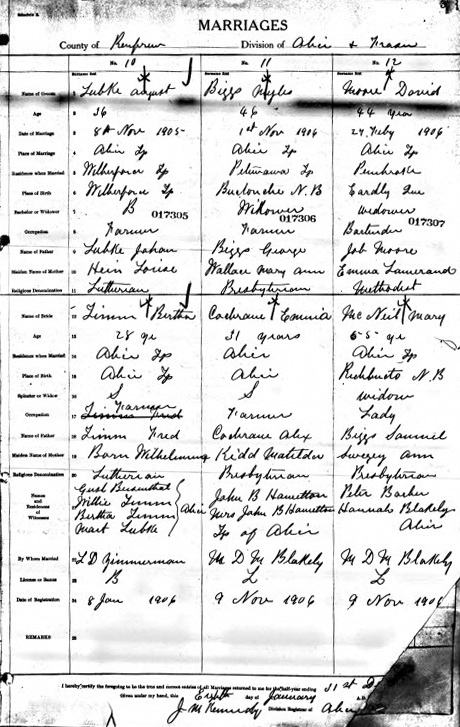 Schedule B.
MARRIAGES
County of Renfrew Division of Alice & Fraser
No. 10 No. 11 No. 12
Surname first Surname first Surname first
Name of Groom 1 Lubke August Biggs Moore David
Age 2 36 46 44 year
Date of Marriage 3 8th Nov 1905 1st Nov 1906 24 Feby 1906
Place of Marriage 4 Alice Tp Alice Tp Alice Tp
Residence when Married 5 Wilberforce Tp Petewawa Tp Pembroke
Place of Birth 6 Wilberforce Tp Buctouche N.B Eardly Que
Bachelor or Widower 7 B Widower widower
017305 017306 017307
Occupation 8 Farmer Farmer Bartender
Name of Father 9 Lubke Johan Biggs George Job Moore
Maiden Name of Mother 10 Hein Louise Wallace Mary Ann Emma
Religious Denomination 11 Lutherian Presbyterian Methodist
Name of Bride 12 Timm Bertha Cochrane Emmia McNeil Mary
Age 13 28 ye 31 years 55 ye
Residence when Married 14 Alice Tp Alice Alice Tp
Place of Birth 15 Alice Tp Alice Richbucto N.B
Spinster or Widow 16 S S widow
Occupation 17 Farmer Farmer Lady
Name of Father 18 Timm Fred Cochrane Alex Biggs Samuel
Maiden Name of Mother 19 Born Wilhelmina Kidd Matilda Sweezy Ann
Religious Denomination 20 Lutherian Presbyterian Presbyterian
Names and Residences of Witnesses
Gust
Willie Timm
Bertha Timm
Mart Lubke
Alice
John B Hamilton
Mrs John B Hamilton
Tp of Alice
Peter Barber
Hannah Blakely
Alice
By Whom Married L D Zimmerman M D M Blakely M D M Blakely
License or Banns B L L
Date of Registration 24 8 Jan 1906 9 Nov 1906 9 Nov 1906
REMARKS 25
I hereby certify the foregoing to be the true and correct entries of all Marriages returned to me for the half-year ending 31st
Given under my hand, this Eighth day of January A.D.
J M Kennedy Division Registrar of Alice